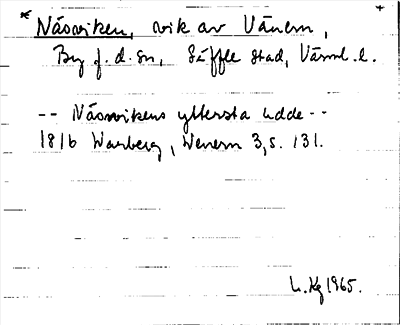 *Näsviken, vik av Vänern,
By f.d. sn, Säffle stad, Värml. l.
-- Näsvikens yttersta udde --
1816 Warberg, Wenern 3, s. 131.
L. Kg 1965.